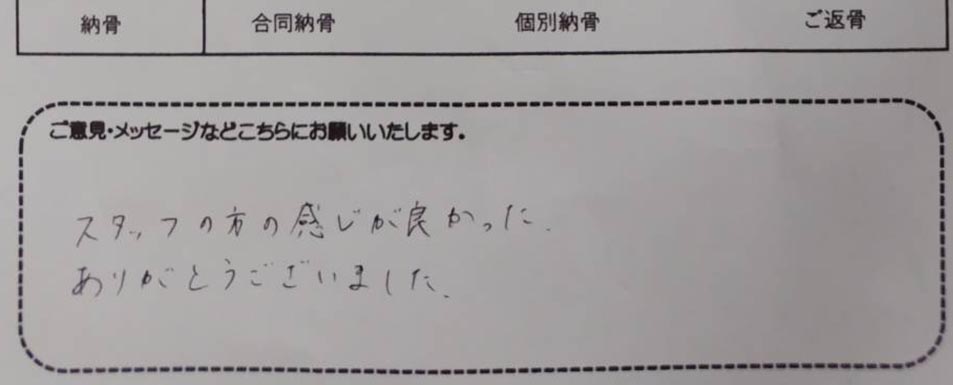 納骨 合同納骨 個別納骨 ご返骨
ご意見・メッセージなどこちらにお願いいたします。
スタッフの方の感じが良かった.
ありがとうございました.